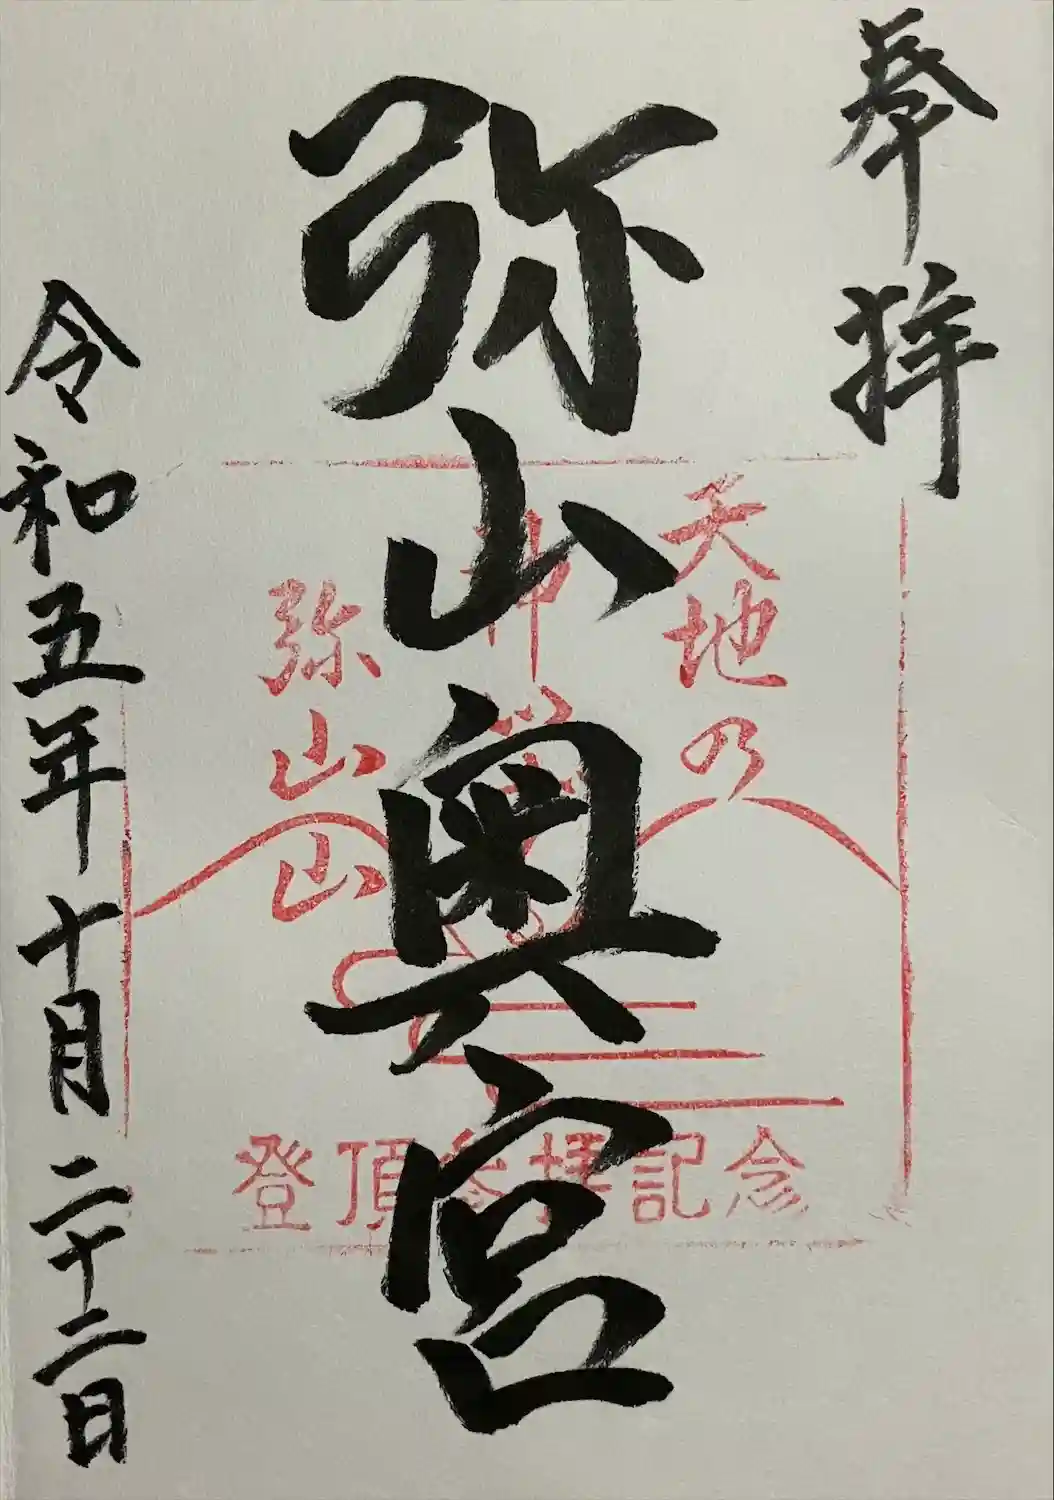 奉拝
弥山奥宮
令和五年十月二十二日
天地の
弥山山
登頂参拝記念